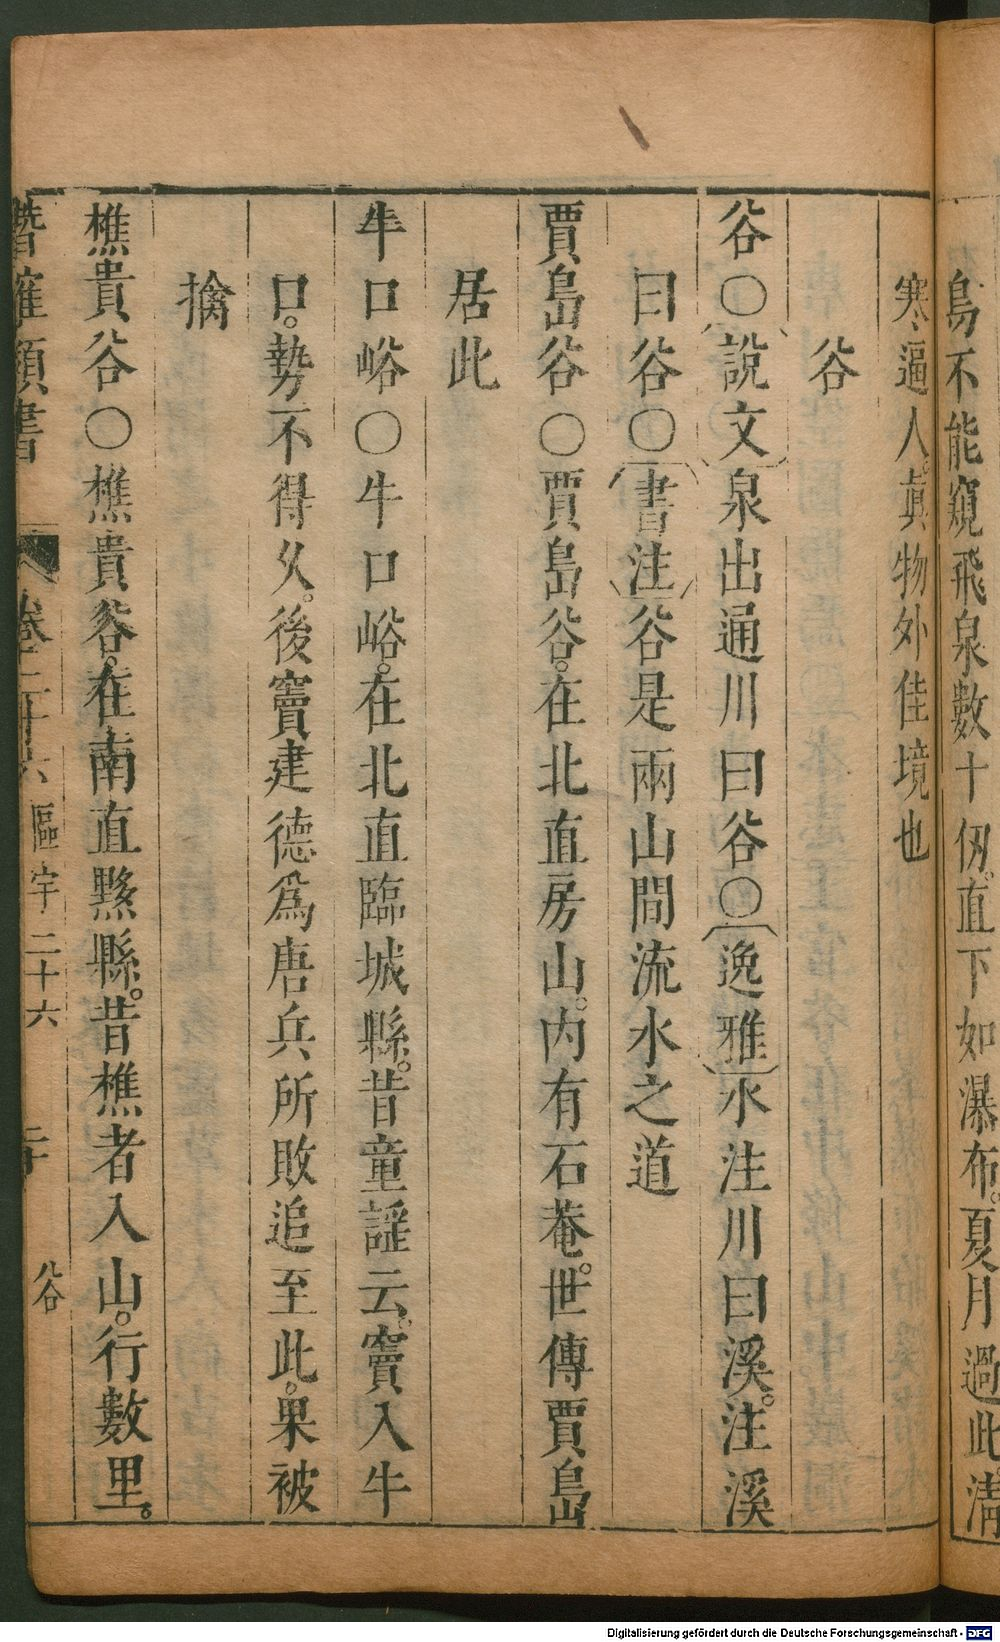 鳥不能窺飛泉數十仭。直下如瀑布。夏月過此淸
寒逼人。眞物外佳境也
谷
谷〇說文泉出通川曰谷〇逸雅水注川曰溪。注溪
曰谷〇書注谷是兩山間流水之道
賈島谷〇賈島谷。在北直房山。内有石菴。世傳賈島
居此
牛口峪〇牛口峪。在北直臨城縣。昔童謡云。竇入牛
口。勢不得久。後竇建德爲唐兵所敗追至此。果被
擒
樵貴谷〇樵貴谷。在南直黟縣。昔樵者入山。行數里。
潛確類書 卷二十六 區宇二十六 二十 谷
Digitalisierung gefördert durch die Deutsche Forschungsgemeinschaft - DFG